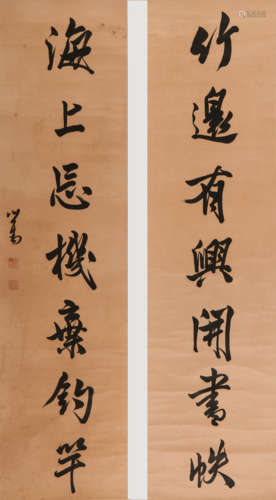 竹邊有興開書帙
海上忘機棄釣竿
心畬